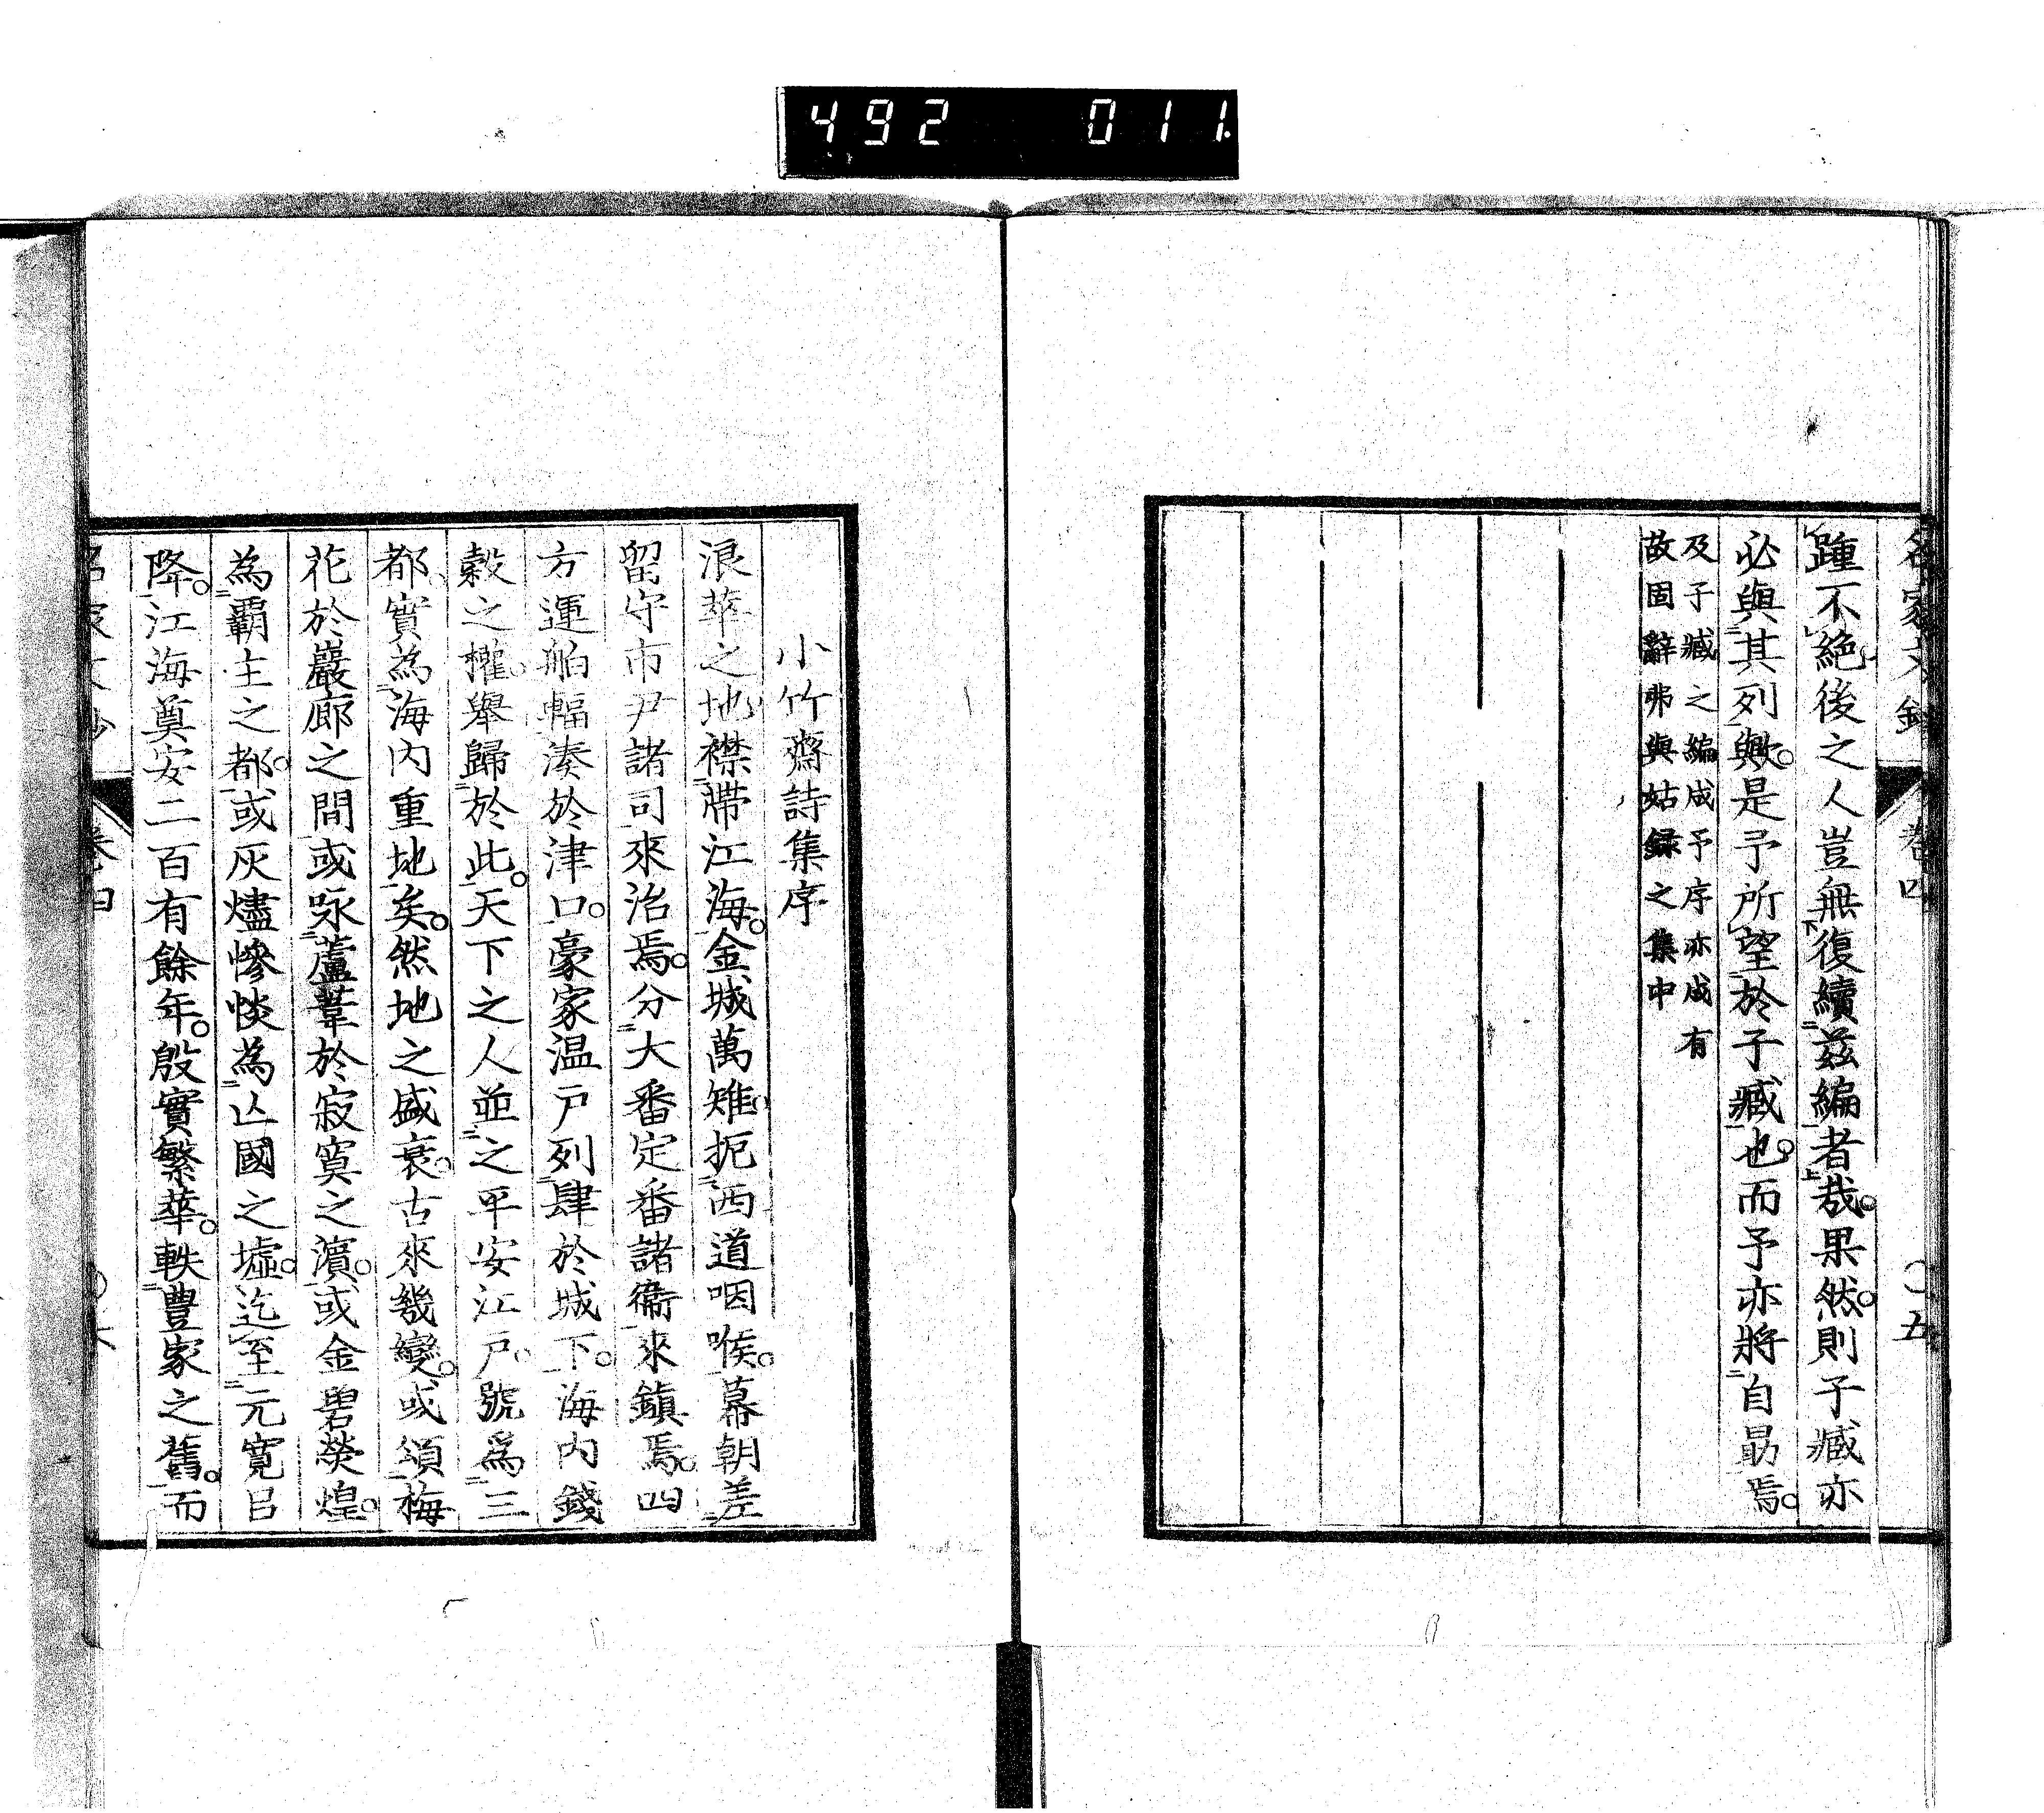 492 011
踵不絶後之人豈無復續茲編者哉果然則子臧亦
必與其列歟是予所望於子臧也而予亦將自勗焉
及子臧之編成予序亦成有
故固辭弗與姑録之集中
卷四
〇五
小竹齋詩集序
浪華之地襟帶江海金城萬雉扼西道咽喉幕朝差
留守市尹諸司來治焉分大番定番諸衞來鎮焉四
方運舶輻湊於津口豪家温戸列肆於城下海内錢
穀之權舉歸於此天下之人並之平安江戸號為三
都實為海内重地矣然地之盛衰古來幾變或頌梅
花於巖廊之間或咏蘆葦於寂寞之濵或金碧熒煌
為覇主之都或灰燼慘惔為亾國之墟迄至元寛㠯
降江海奠安二百有餘年殷實繁華軼豊家之舊而